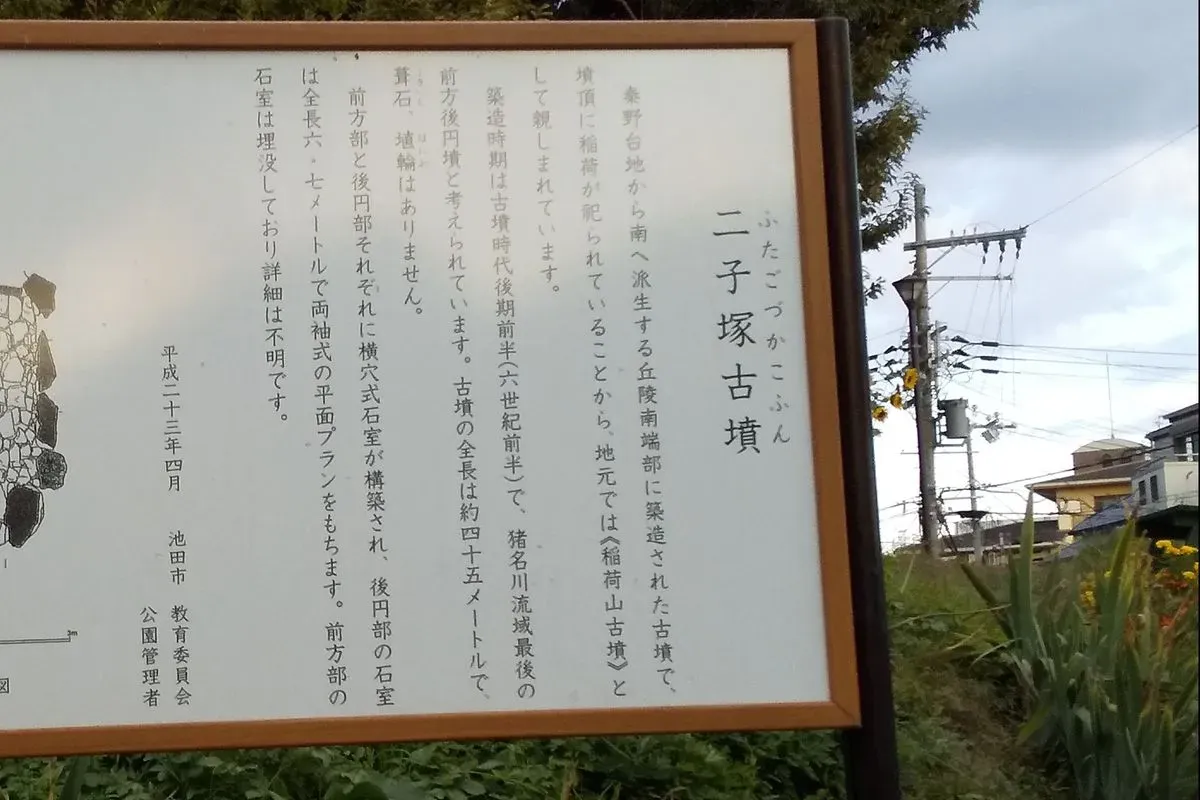 ふたごづかこふん
二子塚古墳
秦野台地から南へ派生する丘陵南端部に築造された古墳で、
墳頂に稲荷が祀られていることから、地元では《稲荷山古墳》と
して親しまれています。
築造時期は古墳時代後期前半(六世紀前半)で、猪名川流域最後の
前方後円墳と考えられています。古墳の全長は約四十五メートルで、
葺石、埴輪はありません。
前方部と後円部それぞれに横穴式石室が構築され、後円部の石室
は全長六・七メートルで両袖式の平面プランをもちます。前方部の
石室は埋没しており詳細は不明です。
平成二十三年四月 池田市 教育委員会
公園管理者
3m
図